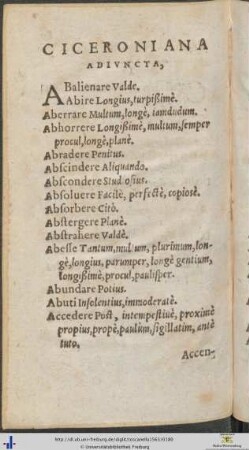 CICERONIANA
ADIVNCTA,
ABalienare Valde.
Abire Longius, turpißimè.
Aberrare Multum, longè, iamdudum.
Abhorrere Longißimè, multum, semper
procul, longè, planè.
Abradere Penitus.
Abscindere Aliquando.
Abscondere Studiosius.
Absoluere Facilè, perfectè, copiosè.
Absorbere Citò.
Abstergere Planè.
Abstrahere Valdè.
Abesse Tantum, multum, plurimum, lon-
gè, longius, parumper, longè gentium,
longißimè, procul, paulisper.
Abundare Potius.
Abuti Insolentius, immoderatè.
Accedere Post, intempestiuè, proximè
propius, propè, paulum, sigillatim, antè
tuto.
Acceu-
© Universitätsbibliothek Freiburg